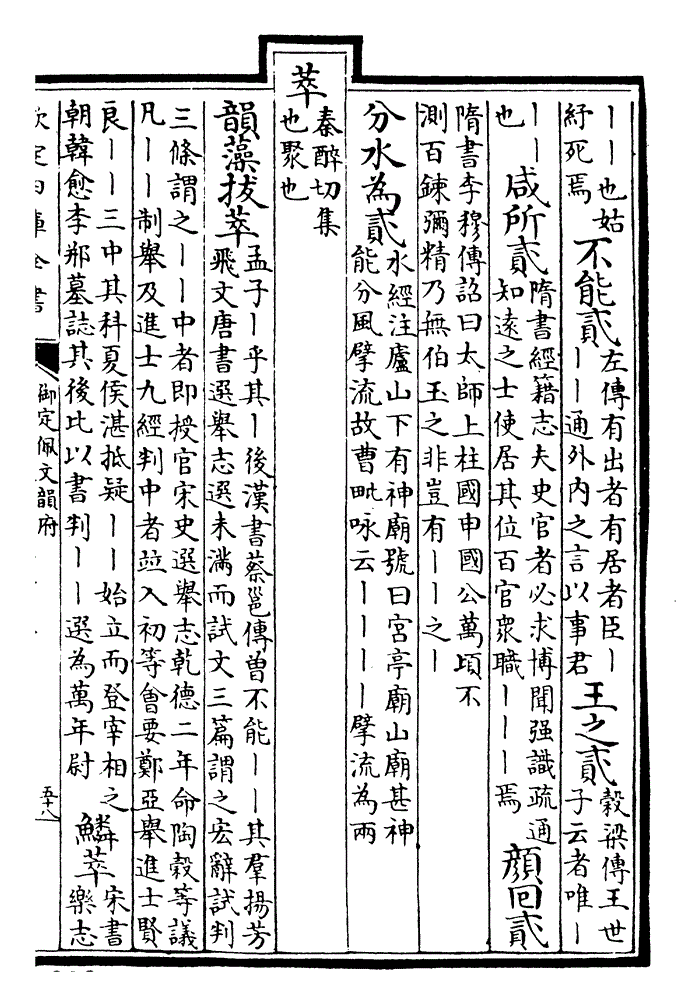 ——也姑
紓死焉
不能貳
左傳有出者有居者臣—
——通外内之言以事君
王之貳
穀梁傳王世
子云者唯—
——
也
咸所貳
隋書經籍志夫史官者必求博聞强識疏通
知遠之士使居其位百官衆職———焉
顔回貳
隋書李穆傳詔曰太師上柱國申國公萬頃不
測百鍊彌精乃無伯玉之非豈有——之—
分水為貳
水經注廬山下有神廟號曰宮亭廟山廟甚神
能分風擘流故曹毗咏云————擘流為兩
萃
秦醉切集
也聚也
韻藻拔萃
孟子—乎其—後漢書蔡邕傳曽不能——其羣揚芳
飛文唐書選舉志選未滿而試文三篇謂之宏辭試判
三條謂之——中者即授官宋史選舉志乾德二年命陶穀等議
凡——制舉及進士九經判中者竝入初等會要鄭亞舉進士賢
良——三中其科夏侯湛抵疑——始立而登宰相之
朝韓愈李郱墓誌其後比以書判——選為萬年尉
鱗萃
宋書
樂志
欽定四庫全書
御定佩文韻府
五十八